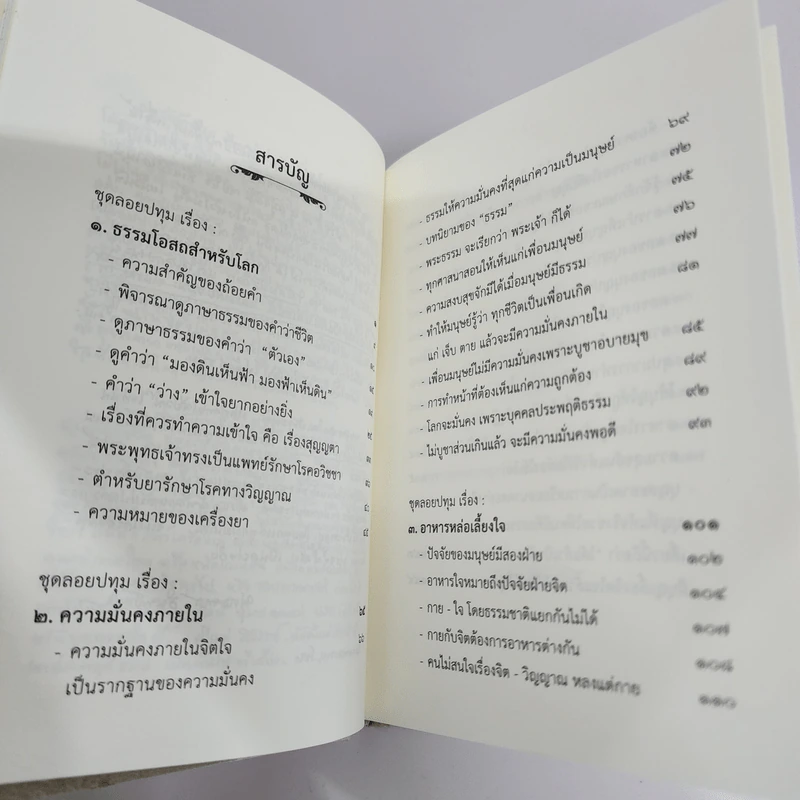 สารบัญ
ชุดลอยปทุม เรื่อง :
๑. ธรรมโอสถสำหรับโลก
- ความสำคัญของถ้อยคำ
- พิจารณาดูภาษาธรรมของคำว่าชีวิต
- ดูภาษาธรรมของคำว่า “ตัวเอง”
- ดูคำว่า “มองดินเห็นฟ้า มองฟ้าเห็นดิน”
- คำว่า “ว่าง” เข้าใจยากอย่างยิ่ง
- เรื่องที่ควรทำความเข้าใจ คือ เรื่องสุญญตา
- พระพุทธเจ้าทรงเป็นแพทย์รักษาโรคอวิชชา
- ตำหรับยารักษาโรคทางวิญญาณ
- ความหมายของเครื่องยา
ชุดลอยปทุม เรื่อง :
๒. ความมั่นคงภายใน ๖๕
- ความมั่นคงภายในจิตใจ ๖๖
เป็นรากฐานของความมั่นคง
- ธรรมให้ความมั่นคงที่สุดแก่ความเป็นมนุษย์ ๖๙
- บทนิยามของ “ธรรม” ๗๒
- พระธรรม จะเรียกว่า พระเจ้า ก็ได้ ๗๕
- ทุกศาสนาสอนให้เห็นแก่เพื่อนมนุษย์ ๗๖
- ความสงบสุขจักมีได้เมื่อมนุษย์มีธรรม ๗๗
- ทำให้มนุษย์รู้ว่า ทุกชีวิตเป็นเพื่อนเกิด ๘๑
แก่ เจ็บ ตาย แล้วจะมีความมั่นคงภายใน
- เพื่อนมนุษย์ไม่มีความมั่นคงเพราะบูชาอบายมุข ๘๕
- การทำหน้าที่ต้องเห็นแก่ความถูกต้อง ๘๙
- โลกจะมั่นคง เพราะบุคคลประพฤติธรรม ๙๒
- ไม่บูชาส่วนเกินแล้ว จะมีความมั่นคงพอดี ๙๓
ชุดลอยปทุม เรื่อง :
๓. อาหารหล่อเลี้ยงใจ ๑๐๑
- ปัจจัยของมนุษย์มีสองฝ่าย ๑๐๒
- อาหารใจหมายถึงปัจจัยฝ่ายจิต ๑๐๔
- กาย - ใจ โดยธรรมชาติแยกกันไม่ได้ ๑๐๗
- กายกับจิตต้องการอาหารต่างกัน ๑๐๘
- คนไม่สนใจเรื่องจิต - วิญญาณ หลงแต่กาย ๑๑๐